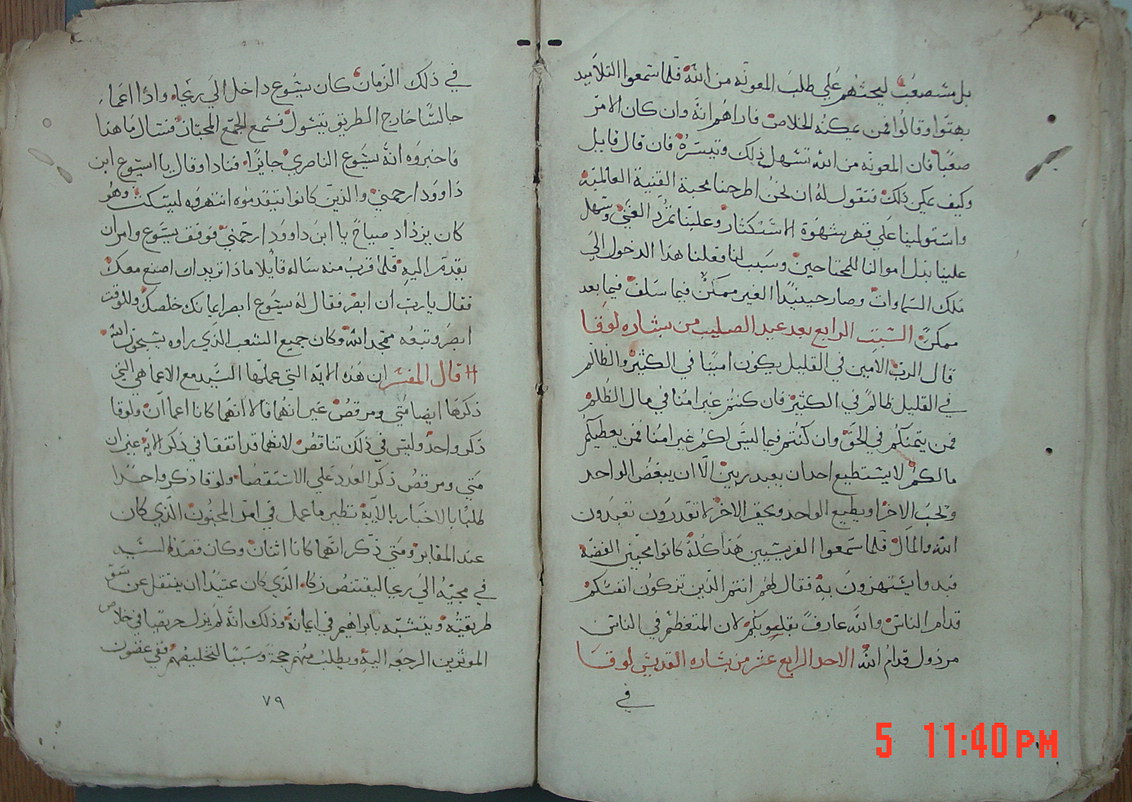 بل مستصعب ليحثهم علي طلب المعونه من الله فلما سمعوا التلاميد
بهتوا وقالوا فمن يمكنه الخلاص فاراهم انه وان كان الامر
صعبًا فان المعونه من الله تسهل ذلك وتيسره فان قال قايل
وكيف يمكن ذلك فنقول له ان نحن اطرحنا محبة القنية العالميه
واستولينا علي قهر شهوة الاستكتار وعلينا تمرد الغني وسهل
علينا بذل اموالنا للمحتاجين وسبب لنا فعلنا هذا الدخول الي
ملك السماوات وصار حينيدًا الغير ممكن فيما سلف فيما بعد
ممكن السبت الرابع بعد عيد الصليب من بشاره لوقا
قال الرب الامين في القليل يكون امينًا في الكثير والظالم
في القليل ظالم في الكثير فان كنتم غير امنا في مال الظلم
فمن يتمنكم في الحق وان كنتم فيما ليس لكم غير امنا فمن يعطيكم
مالكم لا يستطيع احد ان يعبد ربين الا ان يبغض الواحد
ويحب الاخر او يطيع الواحد ويحقر الاخر لا تقدرون تعبدون
الله والمال فلما سمعوا الفريسيين هذا كله كانوا محبين الفضه
فبدوا يستهزون به فقال لهم انتم الذين تزكون انفسكم
قدام الناس والله عارف بقلوبكم لان المتعظم في الناس
مرذول قدام الله الاحد الرابع عشر من بشاره القديس لوقا
في
في ذلك الزمان كان يسوع داخل الي ريحا واذا اعما
جالسًا خارج الطريق يتسول فسمع الجمع المجتاز فسال ما هذا
فاخبروه انه يسوع الناصري جايزًا فنادا وقال يا يسوع ابن
داوود ارحمني والذين كانوا يتقدموه انتهروه ليسكت وهو
كان يزداد صياح يا ابن داوود ارحمني فوقف يسوع وامر ان
يقدم اليه فلما قرب منه ساله قايلا ماذا تريد ان اصنع معك
فقال يا رب ان ابصر فقال له يسوع ابصر ايمانك خلصك وللوقت
ابصر وتبعه مجد الله وكان جميع الشعب الذي راوه يسبحون الله
قال المفسر ان هذه الايه التي عملها السيد مع الاعما هي التي
ذكرها ايضا متي ومرقص غير انهما قالا انهما كانا اعماان ولوقا
ذكر واحد وليس في ذلك تناقص لانهما قد اتفقا في ذكر الايه غير ان
متي ومرقص ذكرا العدد علي الاستقصا ولوقا ذكر واحدًا
طلبًا بالاخبار بالايه نظير ما عمل في امر المجنون الذي كان
عند المقابر ومتي ذكر انهما كانا اثنان وكان قصد السيد
في مجيه الي ريحا ليقتنص زكا الذي كان عتيد ان ينتقل عن سو
طريقته ويتشبه بابراهيم في ايمانه وذلك انه لم يزل حريصا في خلاص
الموثرين الرجوع اليه ويطلب منهم حجة وسببًا لتخليصهم ففي غضون
٧٩
5 11:40 PM